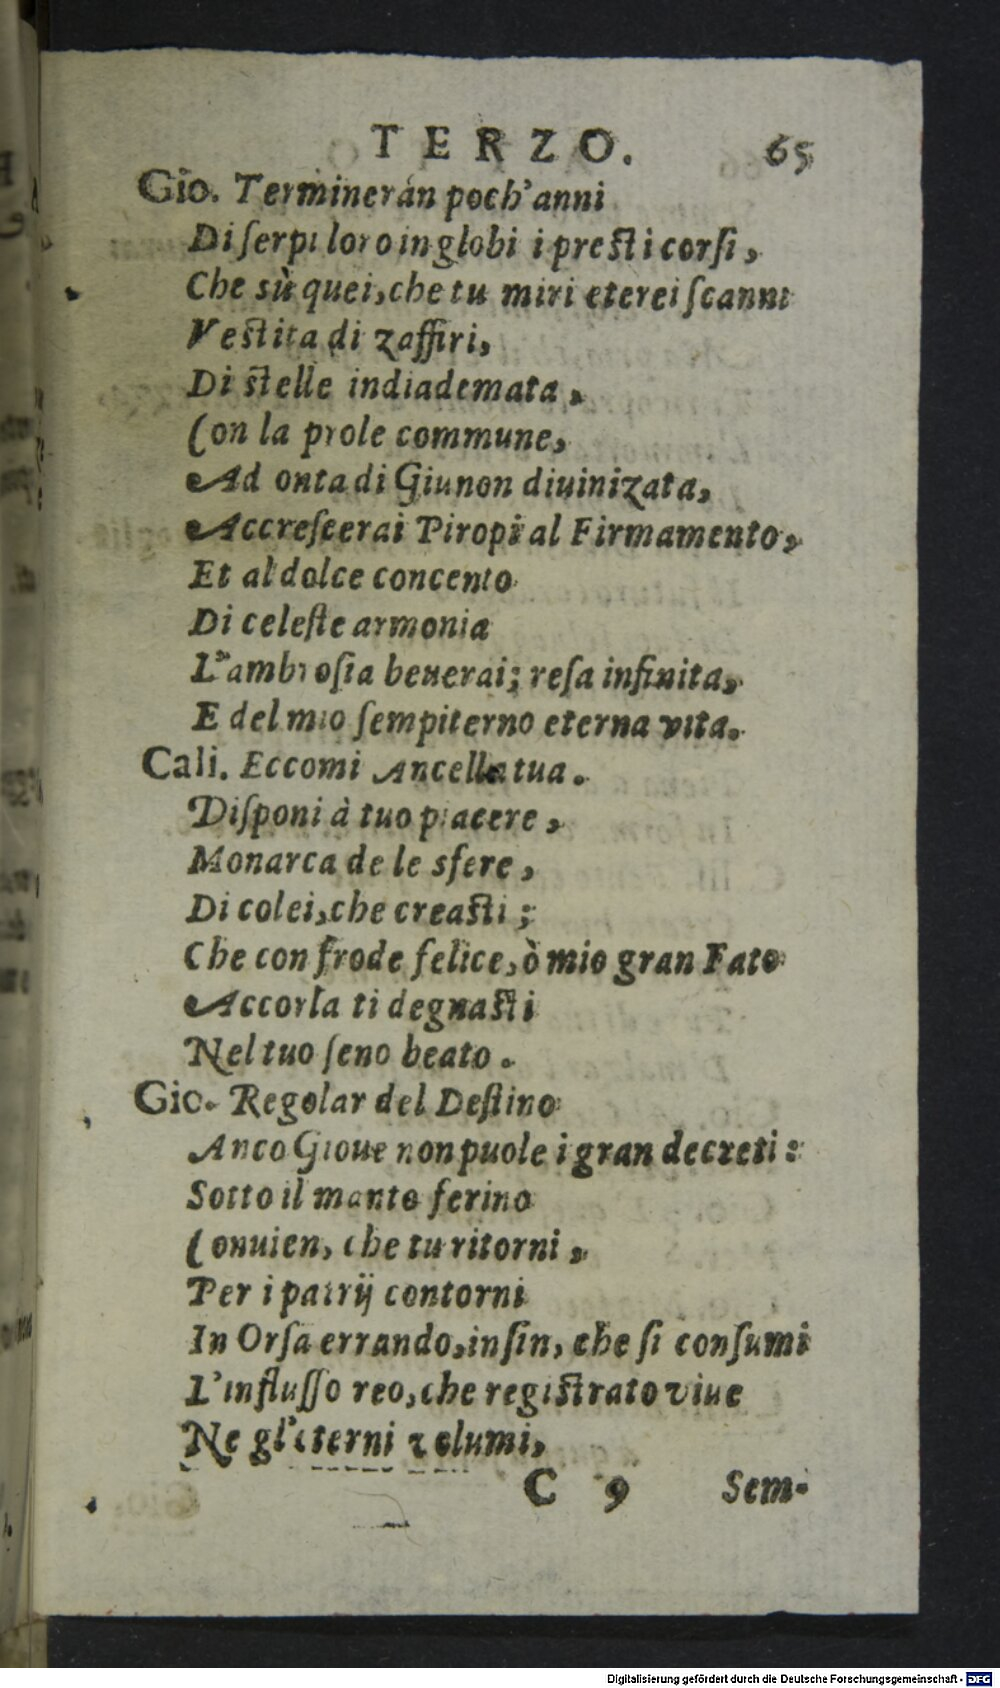 TERZO. 65
Gio. Termineràn poch'anni
Di serpi loro in globi i presti corsi,
Che sù quei, che tu miri eterei scanni
Vestita di zaffiri,
Di stelle indiademata,
Con la prole commune,
Ad onta di Giunon diuinizata,
Accresceerai Piropi al Firmamento,
Et al dolce concento
Di celeste armonia
L'ambrosia beuerai; resa infinita,
E del mio sempiterno eterna vita.
Cali. Eccomi Ancella tua.
Disponi à tuo piacere,
Monarca de le sfere,
Di colei, che creasti;
Che con frode felice, ò mio gran Fato
Accorla ti degnasti
Nel tuo seno beato.
Gio. Regolar del Destino
Anco Gioue non puole i gran decreti:
Sotto il manto ferino
Conuien, che tu ritorni,
Per i patrij contorni
In Orsa errando, insin, che si consumi
L'influsso reo, che registrato viue
Ne gl'eterni volumi,
C 9 Sem-
Digitalisierung gefördert durch die Deutsche Forschungsgemeinschaft - DFG